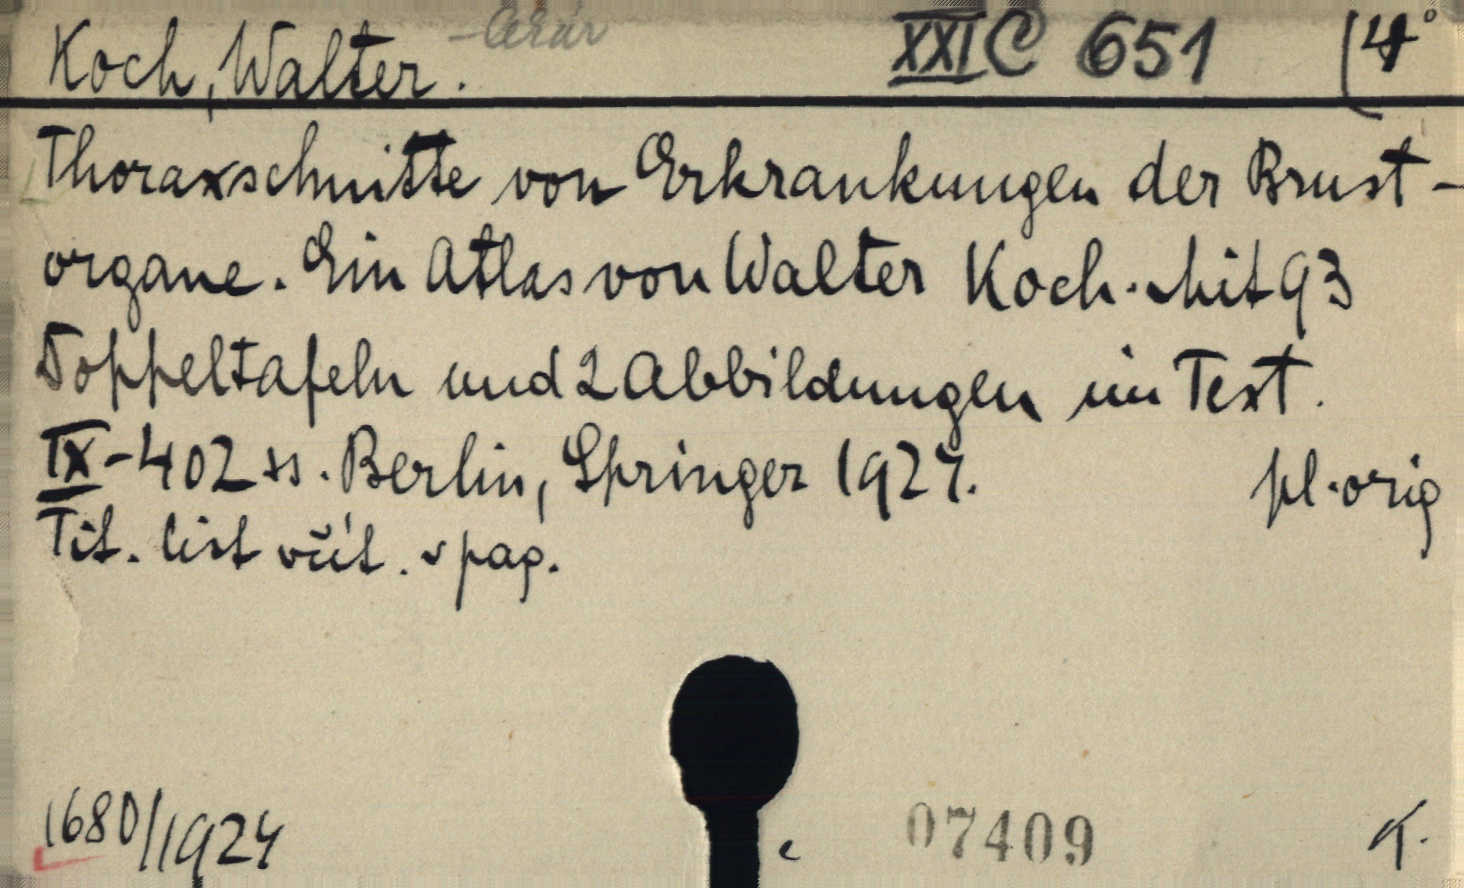 Koch, Walter. XXI C 651 (4°
Thoraxschnitte von Erkrankungen der Brust-
organe. Ein Atlas von Walter Koch. Mit 93
Doppeltafeln und 2 Abbildungen im Text.
IX-402 ss. Berlin, Springer 1924. pl. orig
Tit. list včít. v pag.
1680/1924 07409 K.